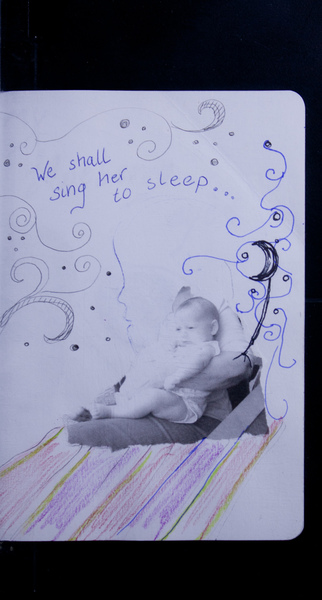 We shall
sing her
to sleep...